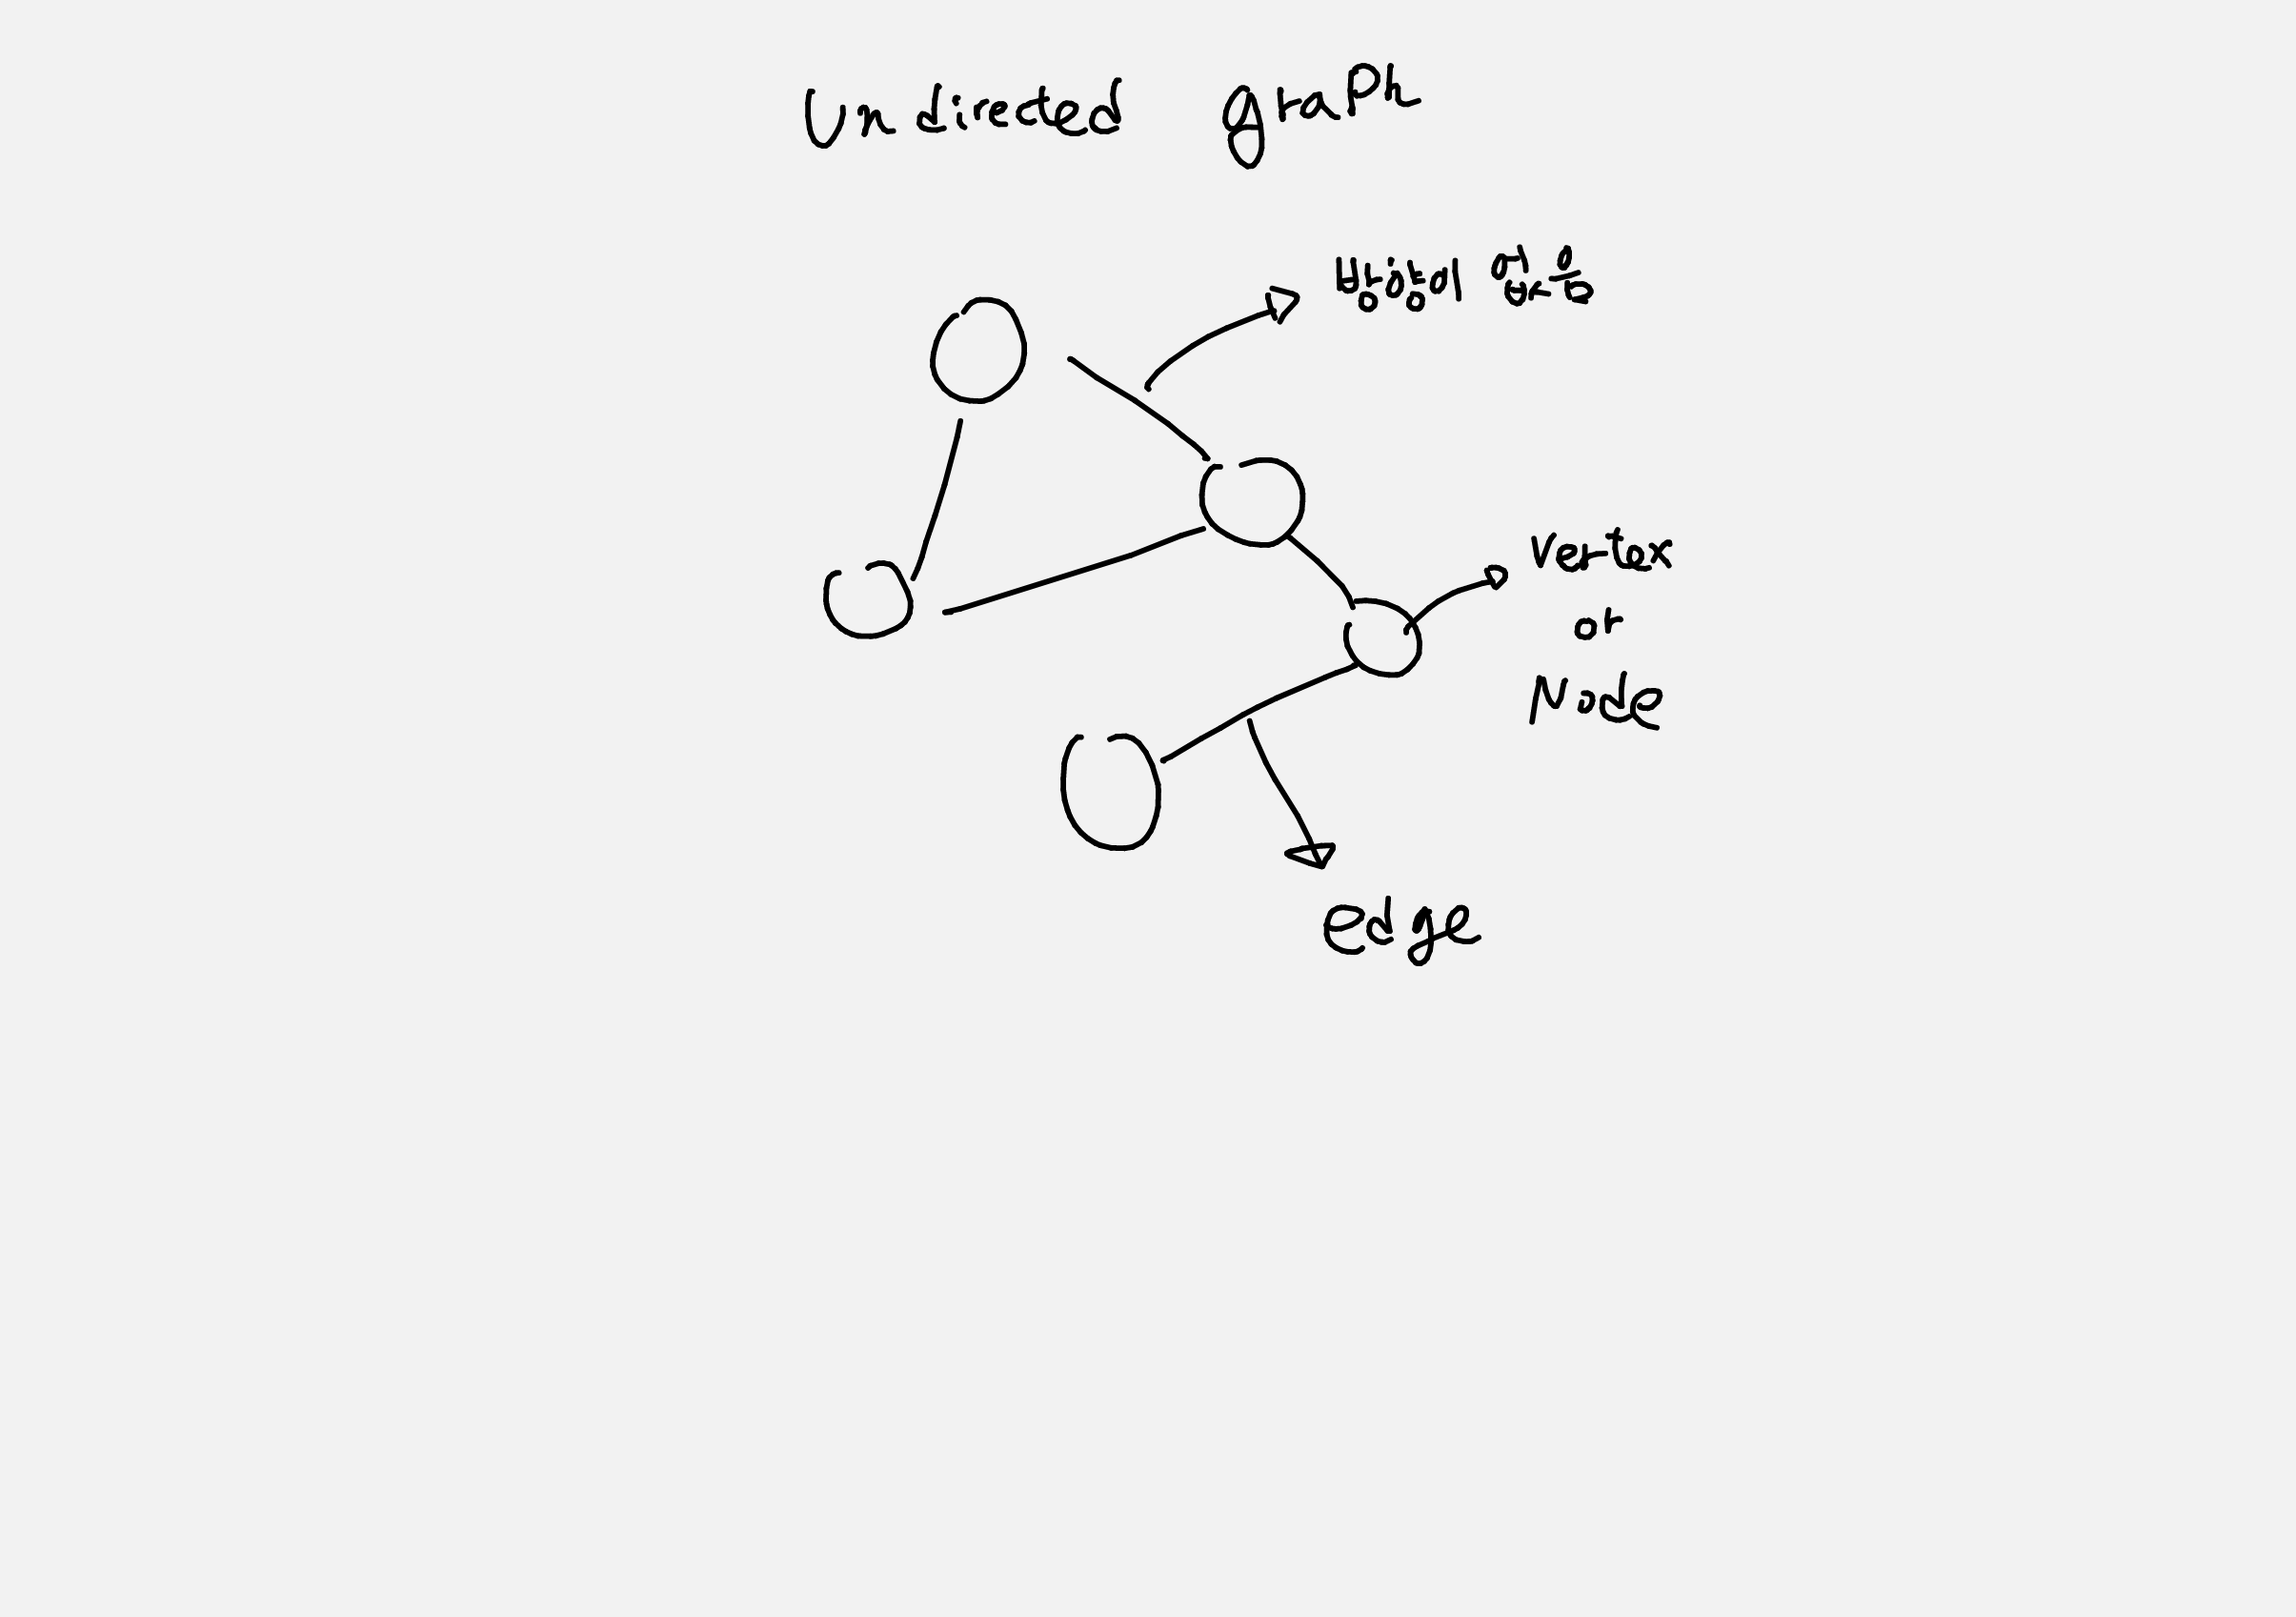 Undirected graph
방향성 없음
Vertex
or
Node
edge